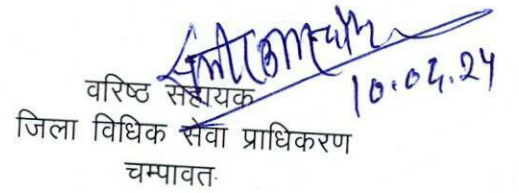 10.04.24
वरिष्ठ सहायक
जिला विधिक सेवा प्राधिकरण
चम्पावत